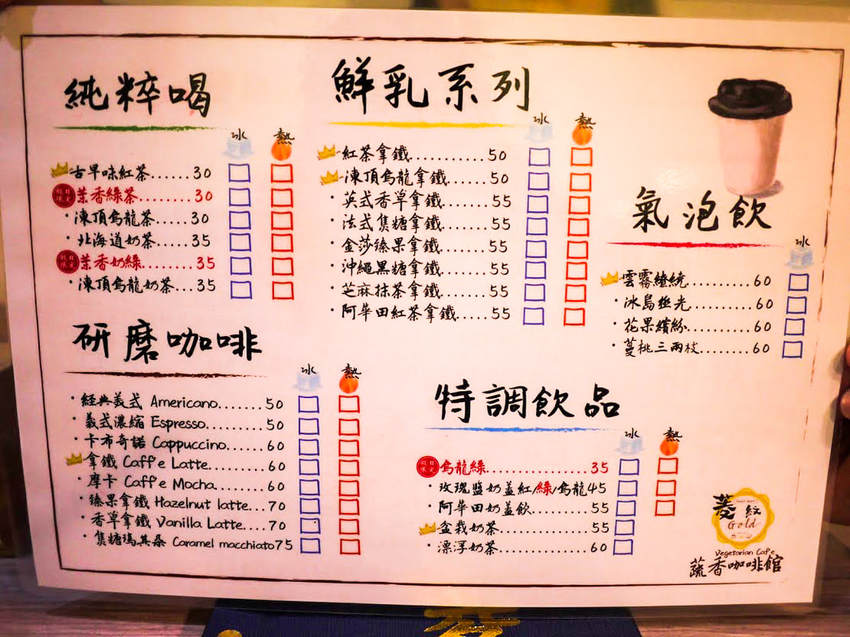 純粹喝
冰 熱
古早味紅茶......30
假日限定 茉香綠茶........30
·凍頂烏龍茶...30
·北海道奶茶...35
假日限定 茉香奶綠.......35
·凍頂烏龍奶茶...35
研磨咖啡
冰 熱
·經典義式 Americano.......50
·義式濃縮 Espresso........50
·卡布奇諾 Cappuccino......60
拿鐵 Caff'e Latte..........60
·摩卡 Caff'e Mocha.........60
·臻果拿鐵 Hazelnut latte...70
·香草拿鐵 Vanilla Latte....70
·焦糖瑪其朵 Caramel macchiato75
鮮乳系列
冰 熱
紅茶拿鐵............50
凍頂烏龍拿鐵......50
·英式香草拿鐵.....55
·法式焦糖拿鐵.....55
·金莎臻果拿鐵.....55
·沖繩黑糖拿鐵.....55
·芝麻抹茶拿鐵.....55
·阿華田紅茶拿鐵.....55
氣泡飲
冰
雲霧繚繞..........60
·冰島極光..........60
·花果繽紛..........60
·蔓桃三兩枝........60
特調飲品
冰 熱
假日限定 烏龍綠................35
·玫瑰鹽奶蓋紅/綠/烏龍45
·阿華田奶蓋飲........55
盆栽奶茶.............55
·漂浮奶茶.............60
菱紋
Gold
Vegetarian Caf'e
蔬香咖啡館